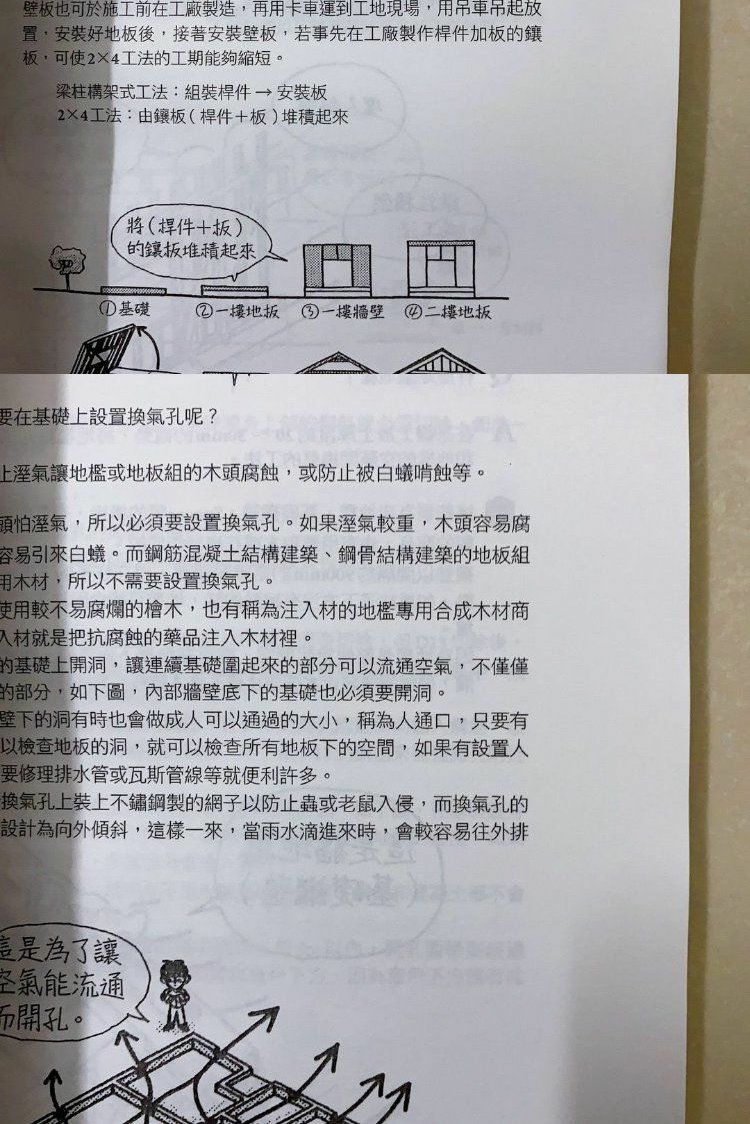 壁板也可於施工前在工廠製造，再用卡車運到工地現場，用吊車吊起放
置，安裝好地板後，接著安裝壁板，若事先在工廠製作桿件加板的鑲
板，可使2×4工法的工期能夠縮短。
梁柱構架式工法：組裝桿件→安裝板
2×4工法：由鑲板（桿件＋板）堆積起來
將（桿件＋板）
的鑲板堆積起來
①基礎 ②一摟地板 ③一摟牆壁 ④二摟地板
要在基礎上設置換氣孔呢？
止溼氣讓地檻或地板組的木頭腐蝕，或防止被白蟻啃蝕等。
頭怕溼氣，所以必須要設置換氣孔。如果溼氣較重，木頭容易腐
容易引來白蟻。而鋼筋混凝土結構建築、鋼骨結構建築的地板組
用木材，所以不需要設置換氣孔。
使用較不易腐爛的檜木，也有稱為注入材的地檻專用合成木材商
入材就是把抗腐蝕的藥品注入木材裡。
的基礎上開洞，讓連續基礎圍起來的部分可以流通空氣，不僅僅
的部分，如下圖，內部牆壁底下的基礎也必須要開洞。
壁下的洞有時也會做成人可以通過的大小，稱為人通口，只要有
以檢查地板的洞，就可以檢查所有地板下的空間，如果有設置人
要修理排水管或瓦斯管線等就便利許多。
換氣孔上裝上不鏽鋼製的網子以防止蟲或老鼠入侵，而換氣孔的
設計為向外傾斜，這樣一來，當雨水滴進來時，會較容易往外排
這是為了讓
空氣能流通
而開孔。